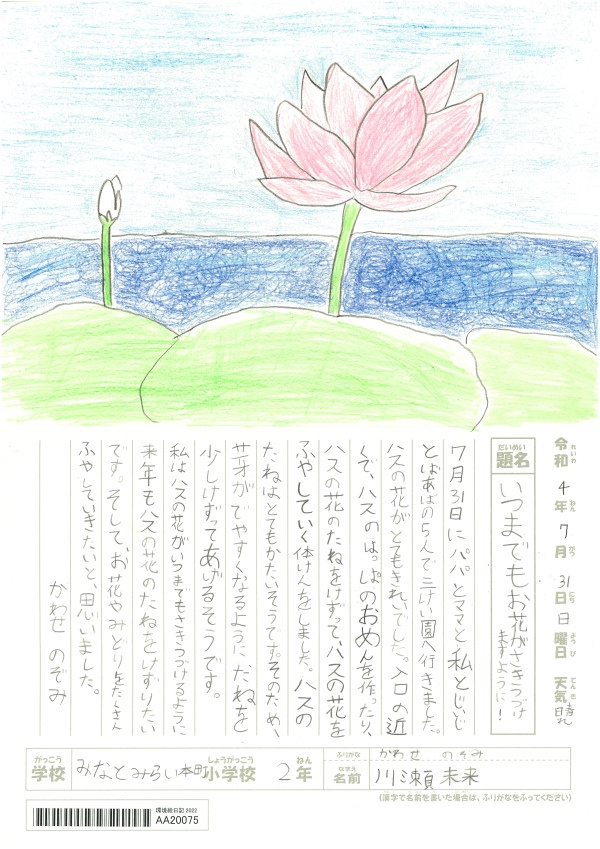 令和4年7月31日日曜日 天気 晴れ
題名 いつまでもお花がさきつづけ
ますように！
7月31日にパパとママと私とじいじ
とばあばの5人で三けい園へ行きました。
ハスの花がとてもきれいでした。入口の近
くで、ハスのはっぱのおめんを作ったり、
ハスの花のたねをけずって、ハスの花を
ふやしていく体けんをしました。ハスの
たねはとてもかたいそうです。そのため、
サオがでやすくなるようにたねを
少しけずってあげるそうです。
私はハスの花がいつまでもさきつづけるように
来年もハスの花のたねをけずりたい
です。そして、お花やみどりをたくさん
ふやしていきたいと、思いました。
かわせ のぞみ
がっこう しょうがっこう ねん ふりがな かわせ のぞみ
学校 みなとみらい本町小学校 2年 名前 川瀬 未来
(漢字で名前を書いた場合は、ふりがなをふってください)
環境絵日記 2022
AA20075